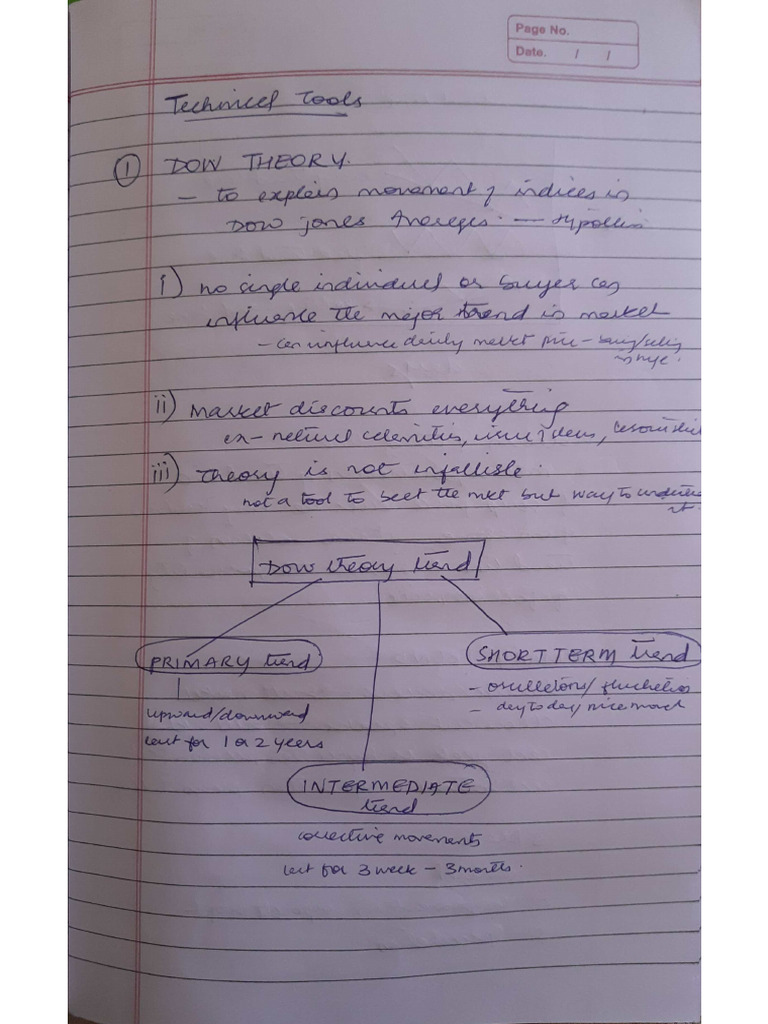 Page No.
Date. / /
Technical Tools
① DOW THEORY.
- to explain movement of indices in
Dow jones Averages. - Hypothesis
i) no single individual or buyer can
influence the major trend in market
- can influence daily market price - buying/selling
in huge.
ii) Market discounts everything
ex- natural calamities,
iii) theory is not infallible.
not a tool to beat the mkt but way to understand
it.
Dow theory trend
PRIMARY trend
SHORT TERM trend
upward/downward
last for 1 or 2 years
- oscillations/fluctuations
- day to day/price
INTERMEDIATE
trend
corrective movements
last for 3 week - 3 months.